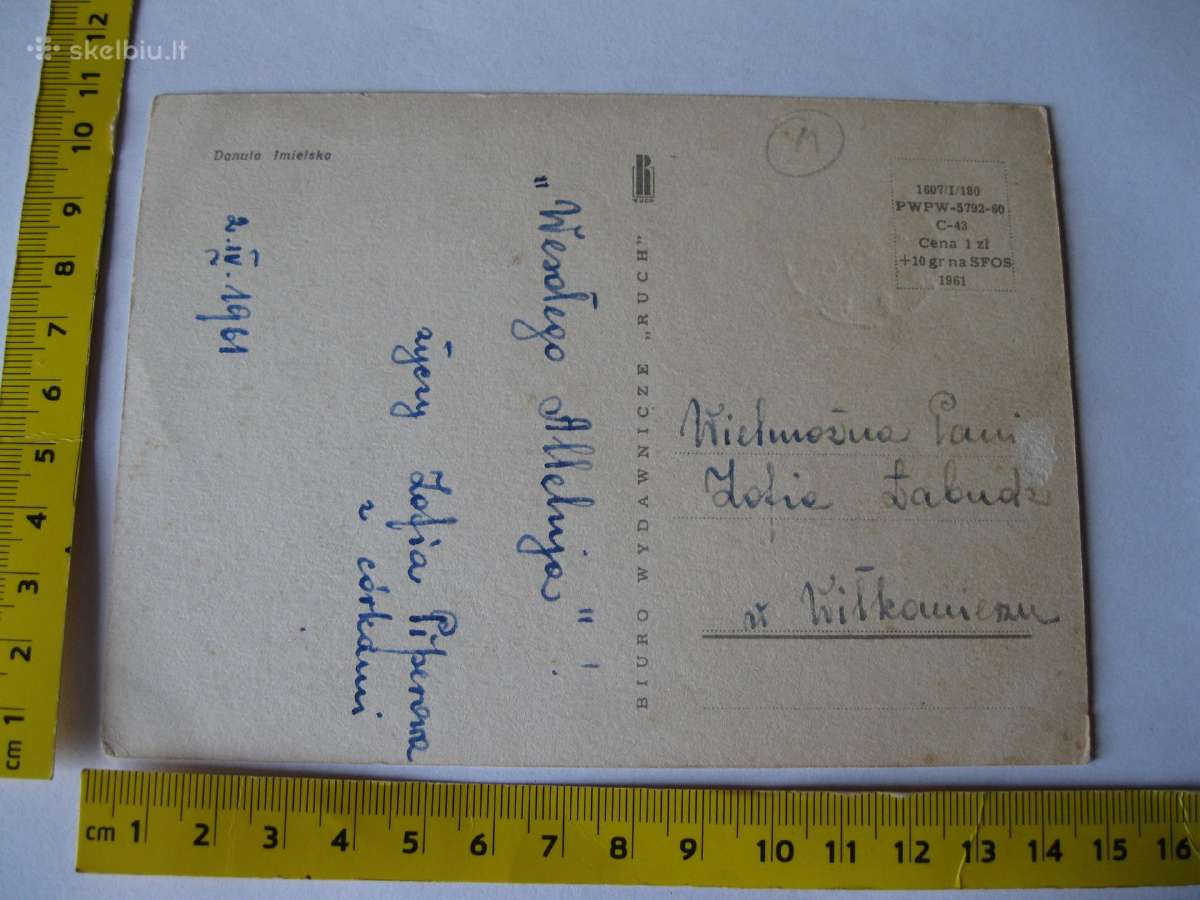 skelbiu.lt
Danuta Imielska
2.IV.1961
"Wesołego Alleluja"!
życzy Zofia Piperowa
z córkami
RUCH
BIURO WYDAWNICZE „RUCH"
M
1607/I/180
PWPW-5792-60
C-43
Cena 1 zł
+10 gr na SFOS
1961
Wielmożna Pani
Zofia
w Wiłkomierzu
cm 1 2 3 4 5 6 7 8 9 10 11 12
cm 1 2 3 4 5 6 7 8 9 10 11 12 13 14 15 16